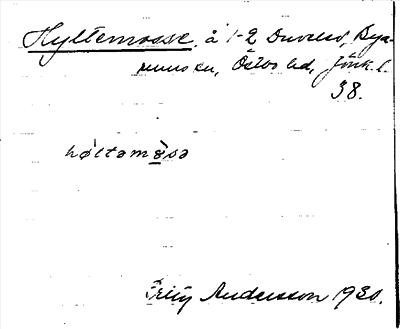 Hyltemosse, å 1-2 Duveled, Bya-
rums sn, Östbo hd, Jönk. l.
38.
høltamåsa
Fritz Andersson 1930.